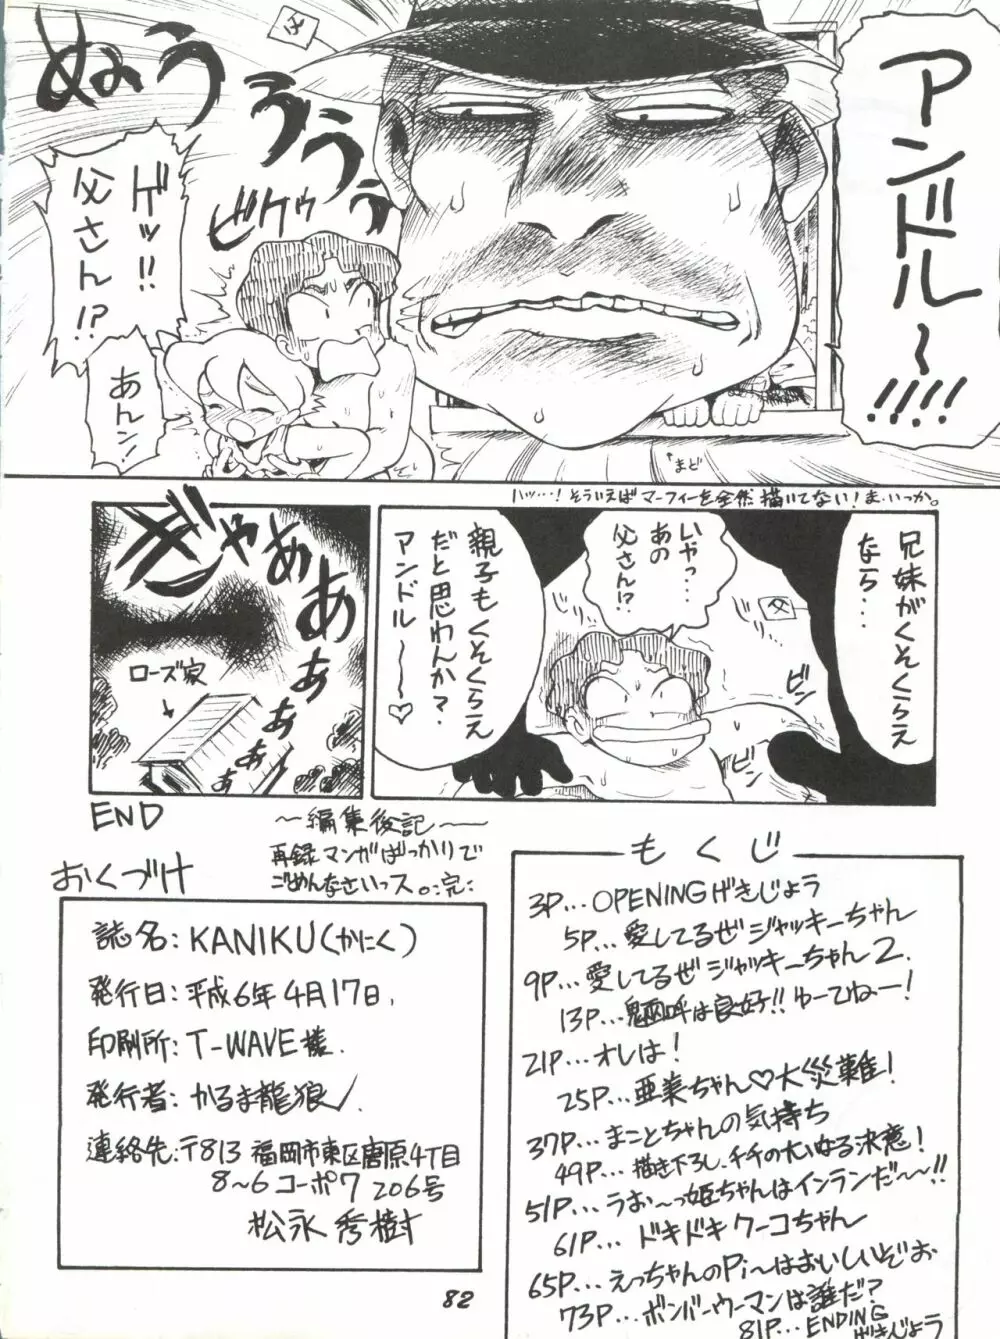 アンドル～!!!!
父
ぬぉうううう
ビクゥ
ゲッ!!
父さん!?
あんッ!
↑まど
ハッ…!そういえばマーフィーを全然描いてない!ま、いっか。
兄妹がくそくらえ
なら…
いやっ…
あの
父さん!?
父
ビン
ビン
親子もくそくらえ
だと思わんか?
アンドル～～♡
ぎゃあぁあぁあぁあぁ
ローズ家
END
～編集後記～
再録マンガばっかりで
ごめんなさいっス。:完:
おくづけ
誌名:KANIKU(かにく)
発行日:平成6年4月17日.
印刷所:T-WAVE様.
発行者:かるま龍狼
連絡先:〒813 福岡市東区唐原4丁目
8~6コーポワ206号
松永秀樹
もくじ
3P...OPENINGげきじょう
5P...愛してるぜジャッキーちゃん
9P...愛してるぜジャッキーちゃん2.
13P...魍呼は良好!!ゆーてねー!
21P...オレは!
25P...亜美ちゃん♡大災難!
37P...まことちゃんの気持ち
49P...描き下ろし、チチの大いなる決意!
51P...うお～っ姫ちゃんはインランだ～～!!
61P...ドキドキクーコちゃん
65P...えっちゃんのPi～はおいしいぞぉ
73P...ボンバーウーマンは誰だ?
81P...ENDING
げきじょう
82